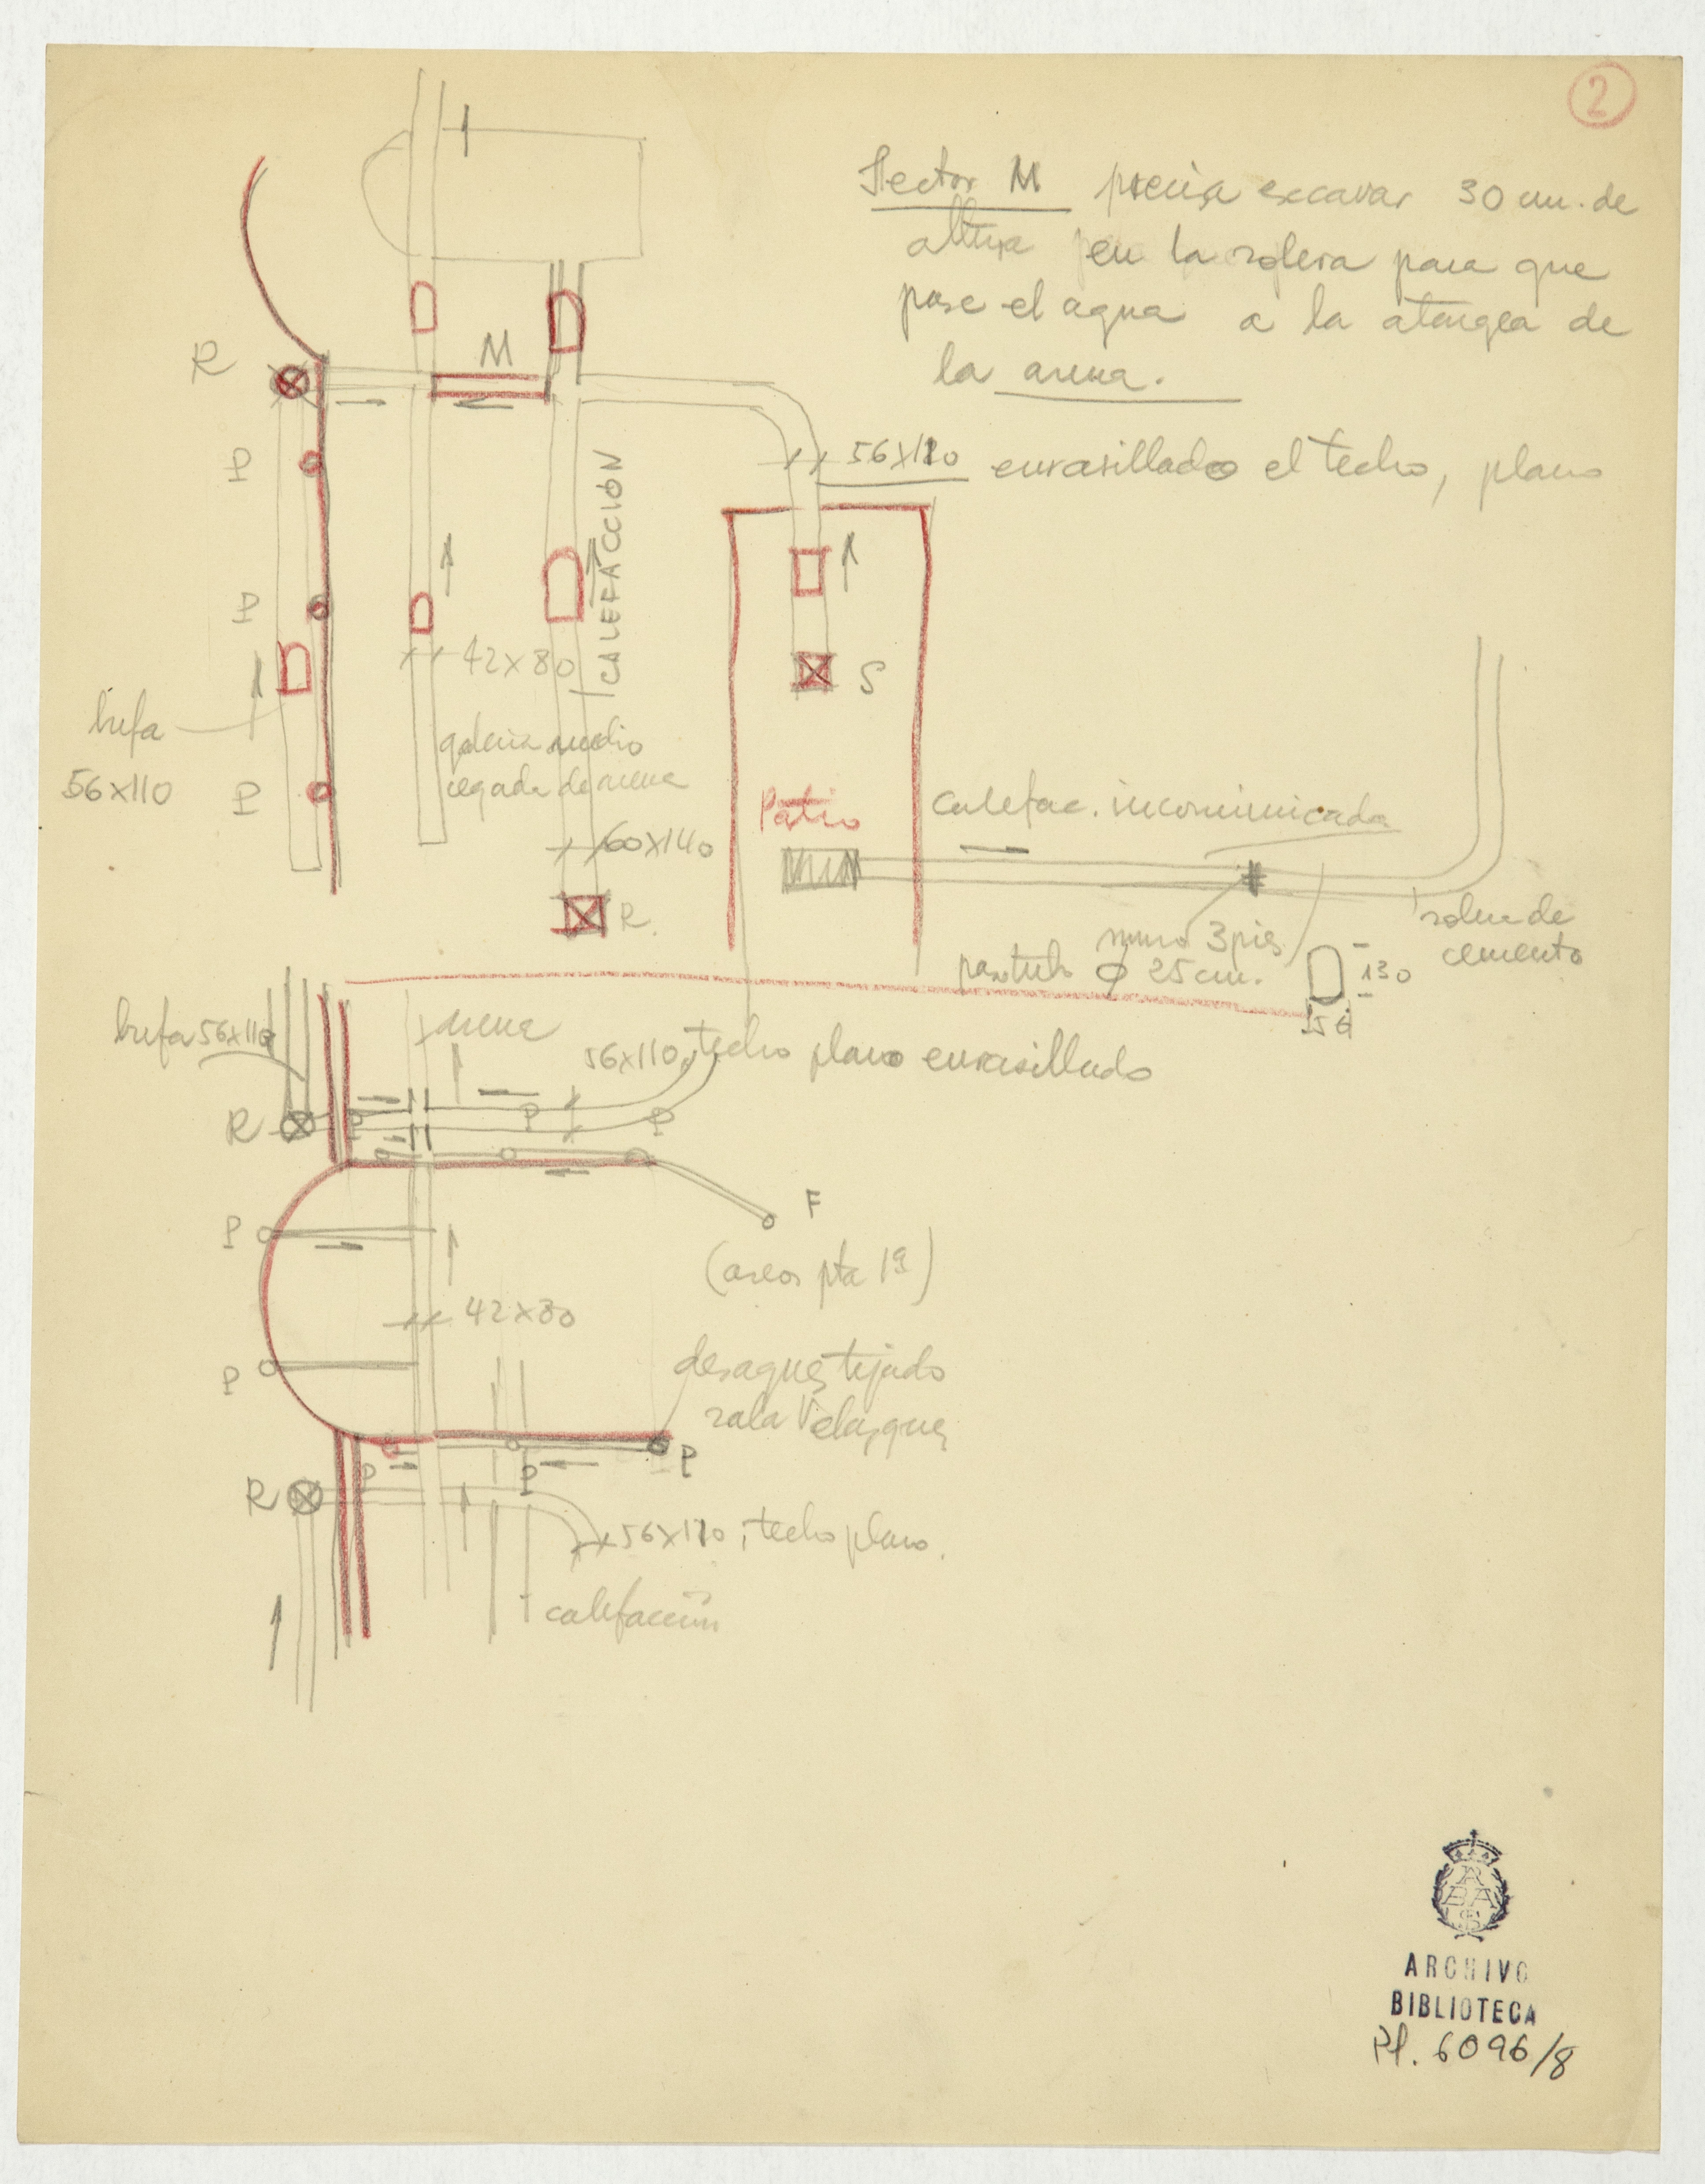 2
Sector M precisa excavar 30 cm. de
altura en la solera para que
pase el agua a la atargea de
la arena.
R
M
P
56x110 enrasillado el techo, plano
CALEFACCIÓN
P
42x80
S
bufa
56x110
P
galeria medio
cegada de arena
Patio
Calefac. incomunicada
60x140
R.
muro 3 pies
pasatubo ϕ 25 cm.
solera de
cemento
130
56
bufa 56x110
arena
56x110, techo plano enrasillado
R
P
P
P
P
F
(aseos pta 1ª)
42x80
P
desagües tejado
sala Velazquez
P
P
P
R
56x110, techo plano.
calefacción
RABASF
ARCHIVO
BIBLIOTECA
Pl. 6096/8